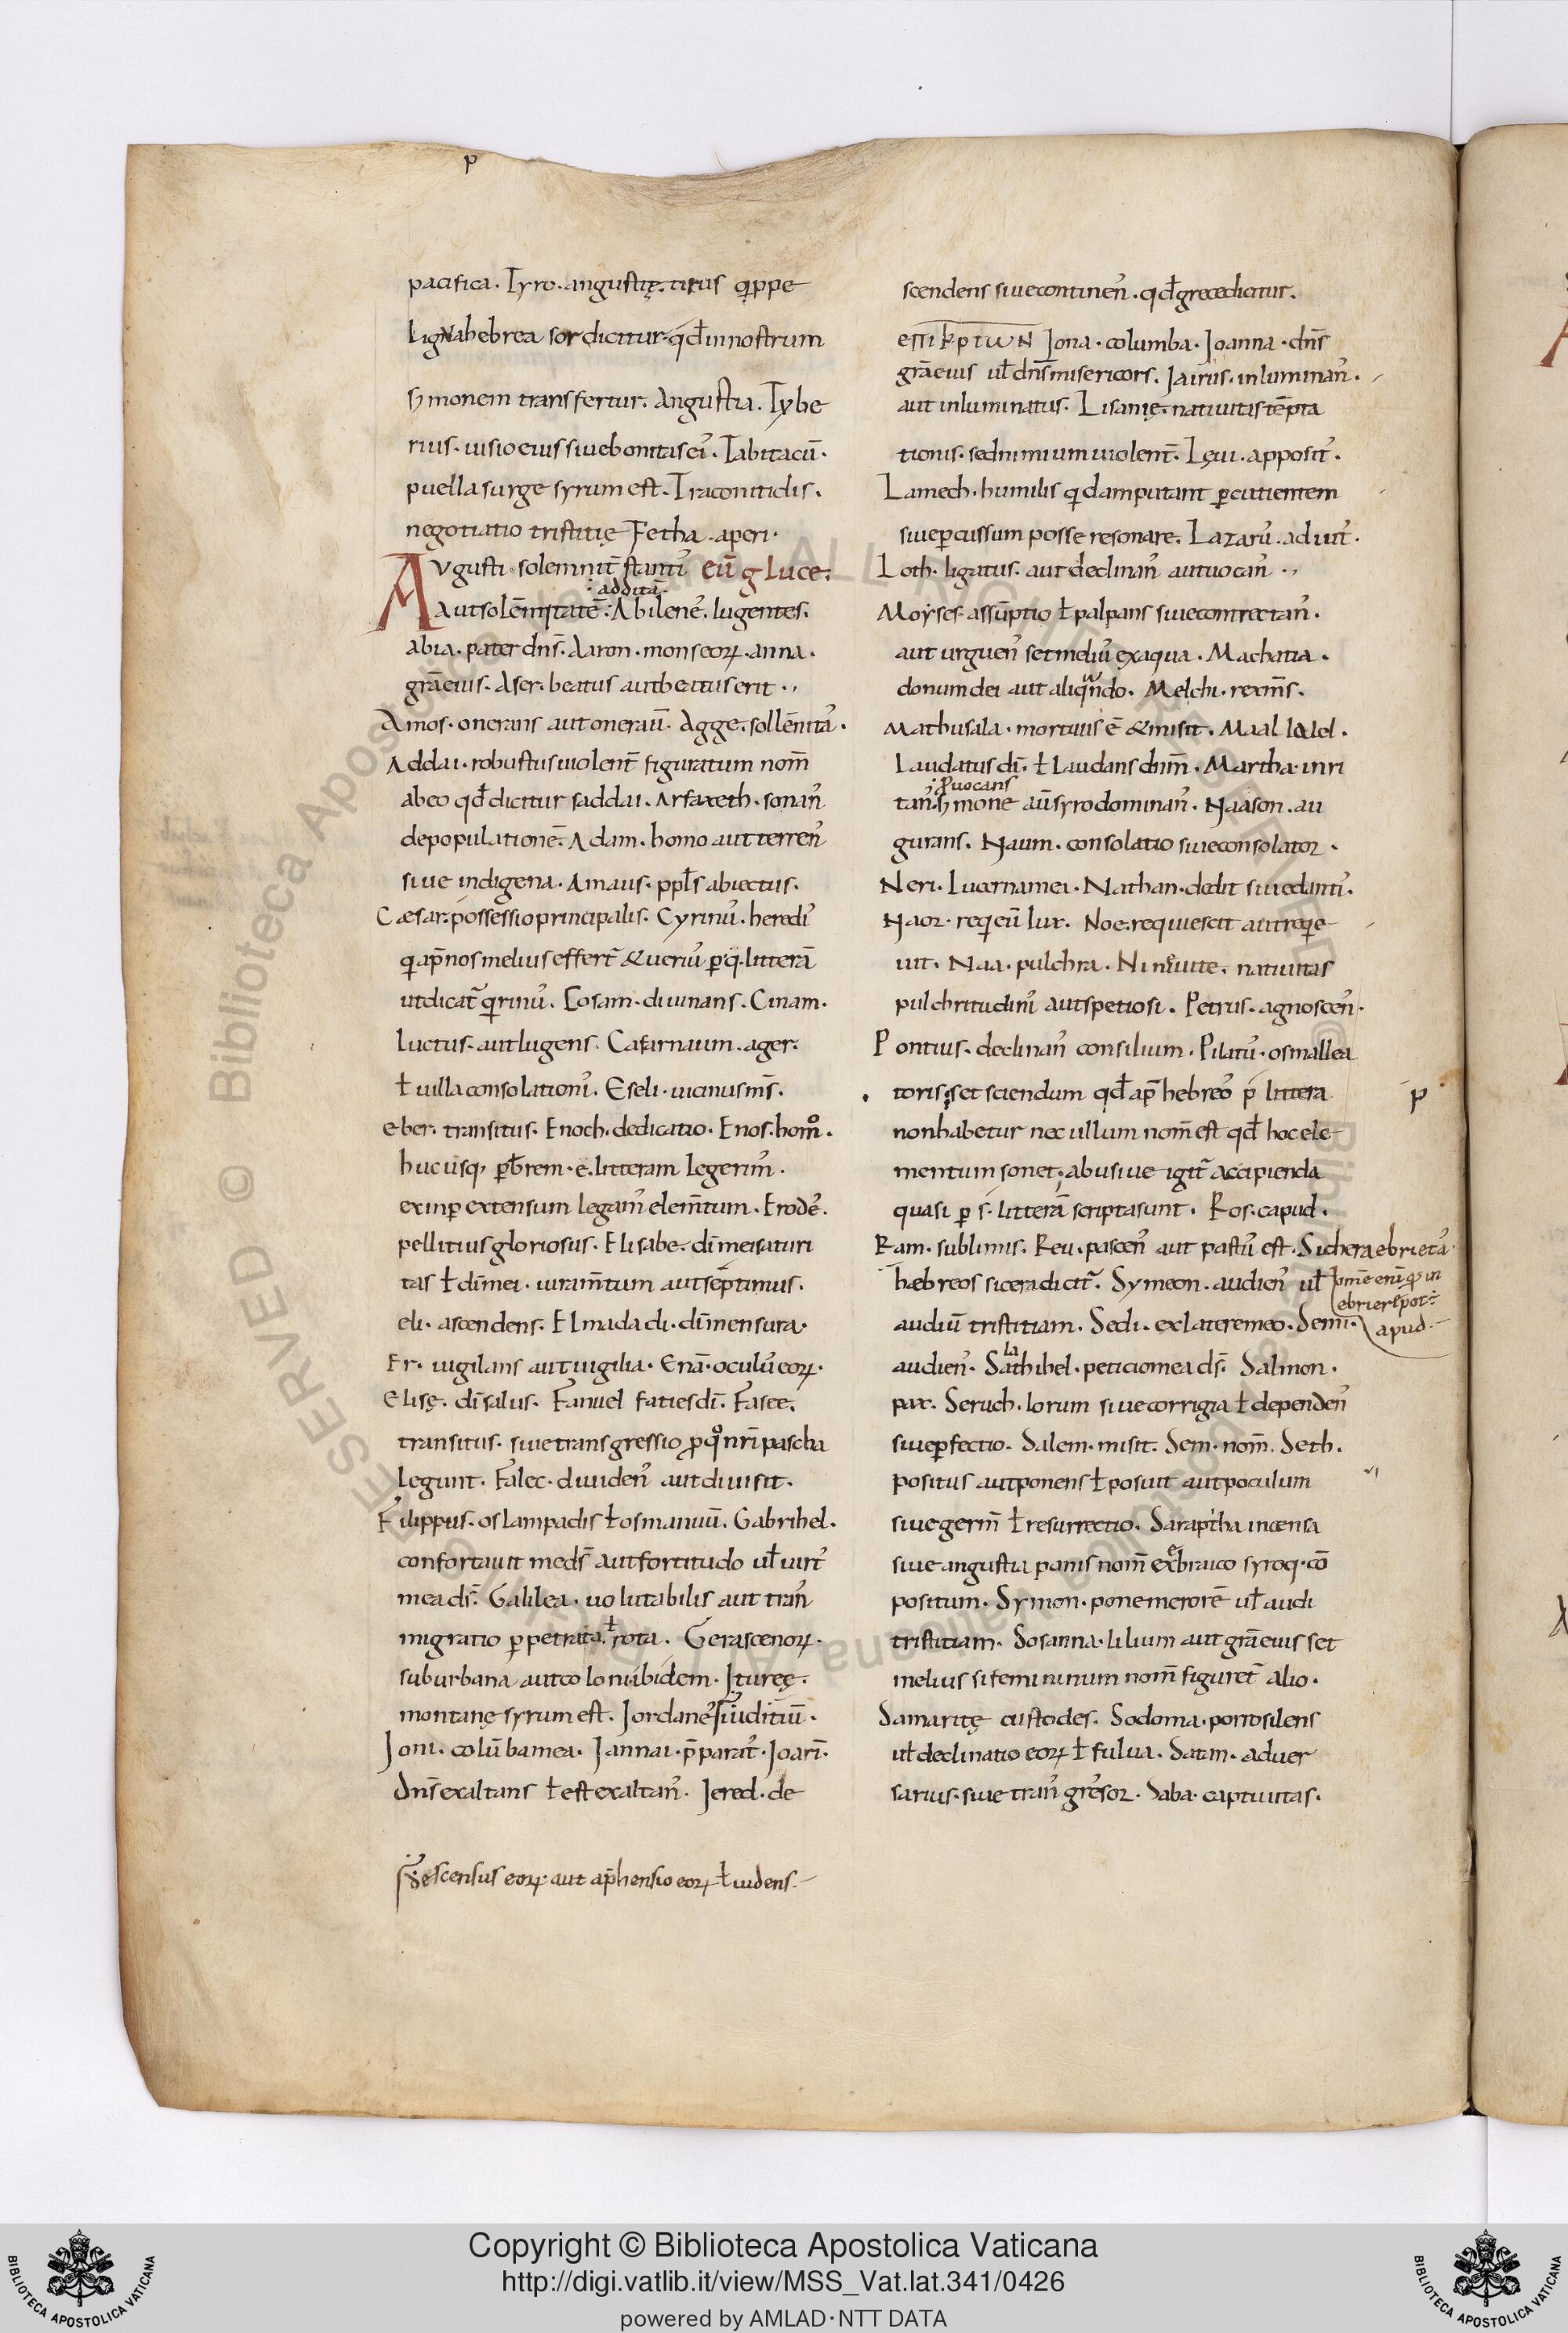 p
pacifica. Tyro. angustię. tirus q̅ppe
Lignua hebrea sor dicitur. qd̅ in nostrum
s̅monem transfertur. Angustia. Tybe
rius. uisio eius siue bonitas ei᾽. Tabitacu̅.
puella surge syrum est. Traconitidis.
negotiatio tristitię Fetha. aperi.
Augusti. solemnit̅ stanti᾽ eu̅ g Luce.
: addita̅.
Aut sole̅mitate̅: Abilene᾽. lugentes.
abia. pater dn̅s. Aaron. mons eoꝝ. anna.
gr̅a eius. Aser. beatus aut beatus erit.,
Amos. onerans aut onerau̅. Agge. solle̅nita᾽.
Addai. robustus uiolent̅ figuratum nom̅
ab eo qd̅ dicitur saddai. Arfaxeth. sonan᾽
depopulatione̅. Adam. homo aut terren᾽
siue indigena. Amaus. ppl̅s abiectus.
Cæsar. possessio principalis. Cyrinu᾽. heredi᾽
qi ap̅ nos melius effert̅ & ueriu᾽ p q. littera̅
ut dicat̅ qirinu᾽. Cosam. diuinans. Cinam.
Luctus. aut lugens. Cafarnaum. ager.
ł uilla consolationi᾽. Eseli. uicinus m̅s.
eber. transitus. Enoch. dedicatio. Enos. homo.
huc usq; p bre̅m. e. litteram legerim᾽.
exinꝑ extensum legam᾽ elem̅tum. Erode᾽.
pellitius gloriosus. Elisabe. di̅ mei saturi
tas ł di̅ mei. iuram̅tum aut se̅ptimus.
eli. ascendens. Elmadadi. di̅ mensura.
Er. uigilans aut uigilia. Ena̅. oculu᾽ eoꝝ.
Elisę. di̅ salus. Fanuel faties di̅. Fasee.
transitus. siue transgressio ꝓ qo nr̅i pascha
legunt. Falec. diuiden᾽ aut diuisit.
Filippus. os lampadis ł os manuu̅. Gabrihel.
confortauit me ds̅ aut fortitudo ul̅ uirt᾽
mea ds̅. Galilea. uolutabilis aut tran᾽
migratio ꝑpetrata. ł rota. Gerascenoꝝ.
suburbana aut coloni ibidem. Ituręę.
montanę syrum est. Jordane᾽ iuditiu̅.
Joni. colu̅ba mea. Jannai. p̅parat᾽. Joari̅.
Dn̅s exaltans ł est exaltan᾽. Jered. de
descensus eoꝝ. aut ap̅hensio eoꝝ ł uidens.
scendens siue continen᾽. qd̅ grece dicitur.
eπikρτωN Jona. columba. Joanna. dn̅s
gr̅a eius ul̅ dn̅s misericors. Jairus. inluminan᾽.
aut inluminatus. Lisanię. natiuitis te̅pta
tionis. sed nimium uiolent̅. Lęui. apposit᾽.
Lamech. humilis qi dam putant ꝑcutientem
siue ꝑcussum posse resonare. Lazaru᾽. adiut᾽.
Loth. ligatus. aut declinan᾽ aut uocan᾽.,
Moyses. assu̅ptio ł palpans siue contrectan᾽.
aut urguen᾽ set meliu᾽ ex aqua. Machatia.
donum dei aut aliqndo. Melchi. rex m̅s.
Mathusala. mortuus e̅ & misit. Maallalel.
Laudatus di̅. ł Laudans dnm̅. Martha. inri
: ꝓuocans
tan᾽. s̅mone au̅ syro dominan᾽. Naason. au
gurans. Naum. consolatio siue consolator.
Neri. Lucerna mei. Nathan. dedit siue danti᾽.
Naor. req̅eui lux. Noe. requiescit aut reqie
uit. Naa. pulchra. Niniuite. natiuitas
pulchritudini᾽ aut spetiosi. Petrus. agnoscen᾽.
Pontius. declinan᾽ consilium. Pilatu᾽. os mallea
toris. set sciendum qd̅ ap̅ hebreo᾽ p littera
p
non habetur nec ullum nom̅ est qd̅ hoc ele
mentum sonet. abusiue igit̅ accipienda
quasi p f. littera̅ scripta sunt. Ros. capud.
Ram. sublimis. Reu. pascen᾽ aut pastu᾽ est. Sichera ebrieta᾽.
hæbreos sicera dicit̅. Symeon. audien᾽ ul̅
ome̅ eni̅ q̅ in
ebriare pot᾽:
apud.
audiu̅ tristitiam. Sedi. ex latere meo. Semi.
audien᾽. Salathihel. peticio mea ds̅. Salmon.
pax. Seruch. lorum siue corrigia ł dependen᾽
siue ꝑfectio. Salem. misit. Sem. nom̅. Seth.
positus aut ponens ł posuit aut poculum
siue germ̅ ł resurrectio. Saraptha incensa
siue angustia panis nom̅ ex ebraico syroq. co̅
positum. Symon. pone merore̅ ul̅ audi
tristitiam. Sosanna. lilium aut gr̅a eius set
melius si femininum nom̅ figuret̅ alio.
Samaritę custodes. Sodoma. porro silens
ul̅ declinatio eoꝝ ł fulua. Satan. aduer
sarius. siue tran᾽gre᾽sor. Saba. captiuitas.
Copyright © Biblioteca Apostolica Vaticana
http://digi.vatlib.it/view/MSS_Vat.lat.341/0426
powered by AMLAD·NTT DATA